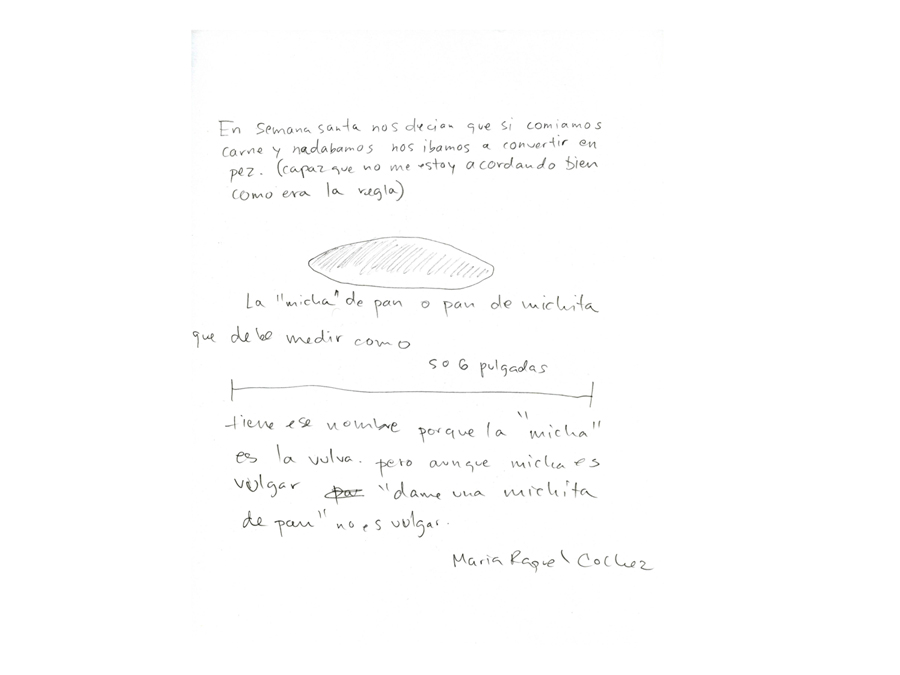 En semana santa nos decian que si comiamos
carne y nadabamos nos ibamos a convertir en
pez. (capaz que no me estoy acordando bien
como era la regla)
La "micha" de pan o pan de michita
que debe medir como
5 o 6 pulgadas
tiene ese nombre porque la "micha"
es la vulva. pero aunque micha es
vulgar par "dame una michita
de pan" no es vulgar.
Maria Raquel Cochez